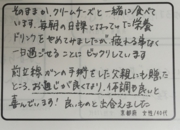 そのままか、クリームチーズと一緒に食べて
います。毎朝の日課となっていた栄養
ドリンクをやめてみましたが疲れも無く
一日過ごせることにビックリしています
前立腺ガンの手術をした父親にも贈った
ところ、お通じが良くなり、体調も良いと
喜んでいます！良いものと出会えました
京都府 女性/40代